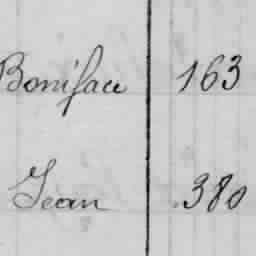 Boniface 163
Jean 380